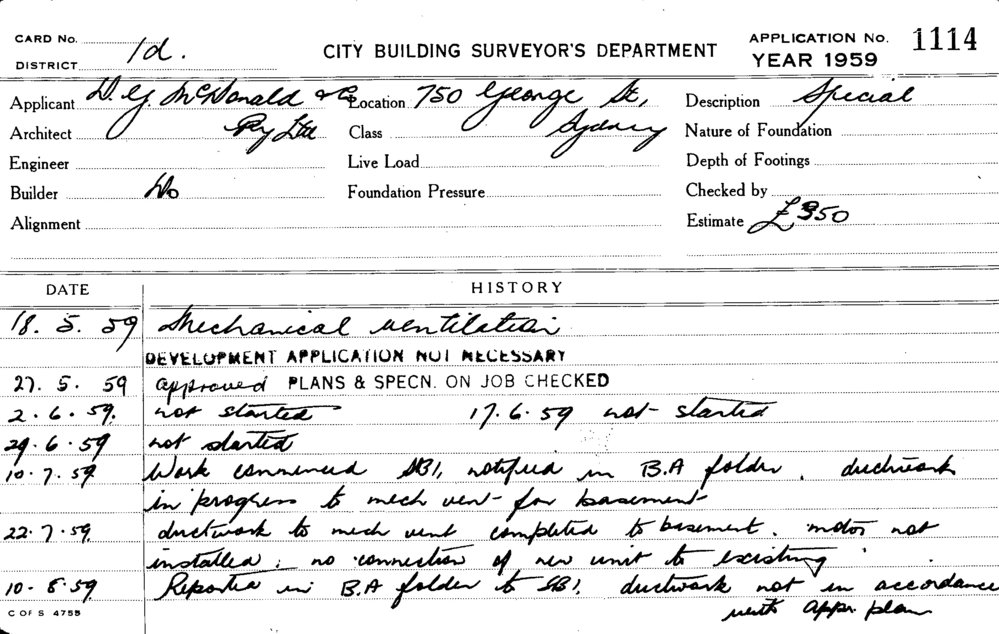 CARD No.
DISTRICT 1d.
CITY BUILDING SURVEYOR'S DEPARTMENT
APPLICATION No. 1114
YEAR 1959
Applicant D. Y. McDonald & Co Location 750 George St, Description Special
Architect Pty Ltd Class Sydney Nature of Foundation
Engineer Live Load Depth of Footings
Builder Do Foundation Pressure Checked by
Alignment Estimate £350
DATE HISTORY
18. 5. 59 Mechanical ventilation
DEVELOPMENT APPLICATION NOT NECESSARY
27. 5. 59 approved PLANS & SPECN. ON JOB CHECKED
2. 6. 59. not started 17.6.59 not started
29. 6. 59 not started
10. 7. 59 Work commenced SBI, notified in B.A folder. ductwork
in progress to mech vent for basement
22. 7. 59. ductwork to mech vent completed to basement. motor not
installed; no connection of new unit to existing
10. 8. 59 Reported in B.A folder to SBI, ductwork not in accordance
with appr plan
C OF S 4755